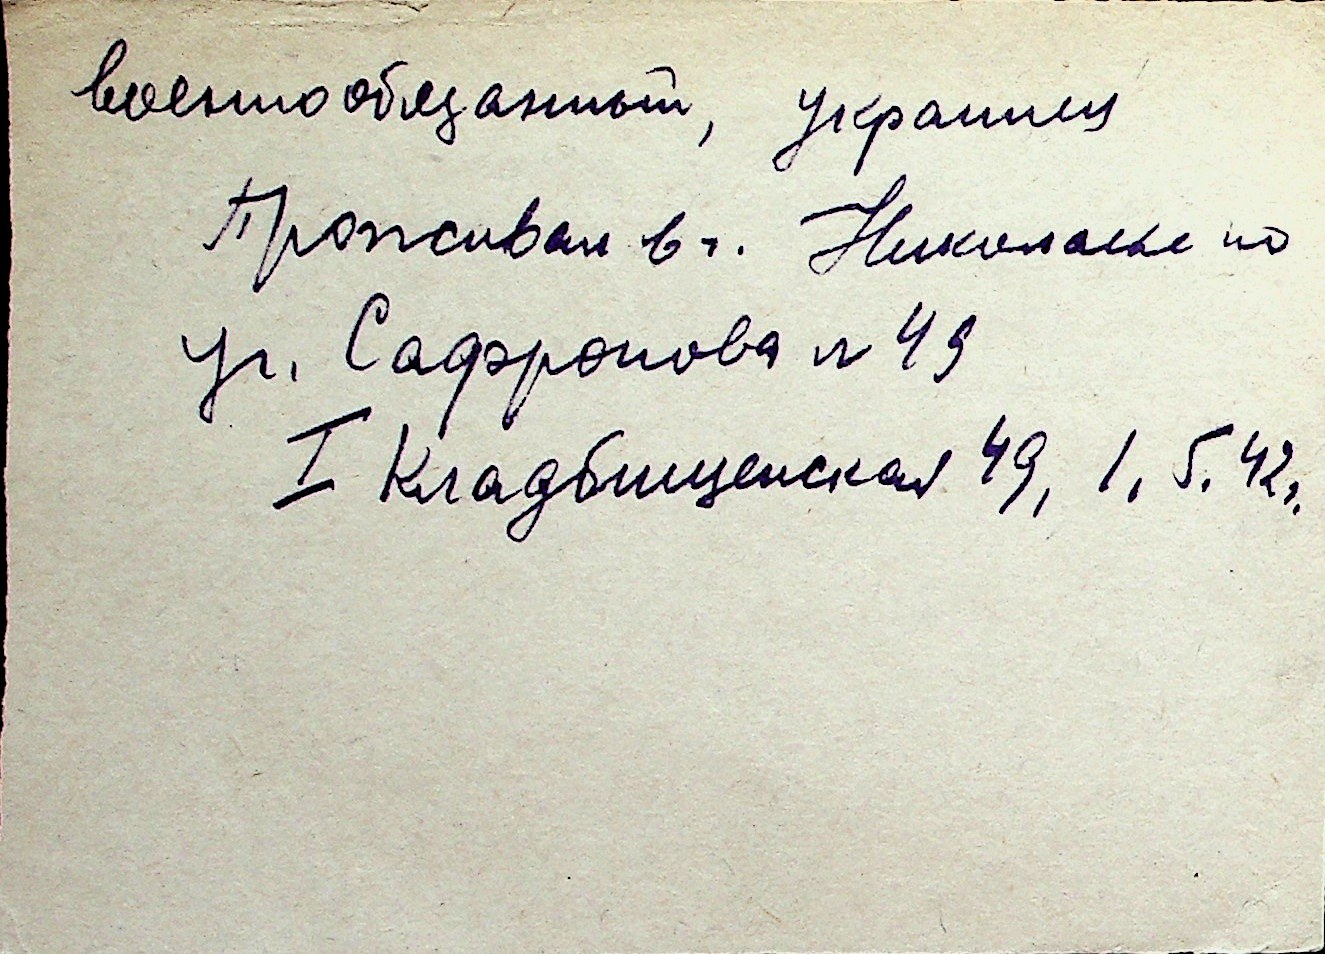 военнообязанный, украинец
Проживал в г. Николаеве по
ул. Сафронова № 49
I Кладбищенская 49, 1.5.42г.